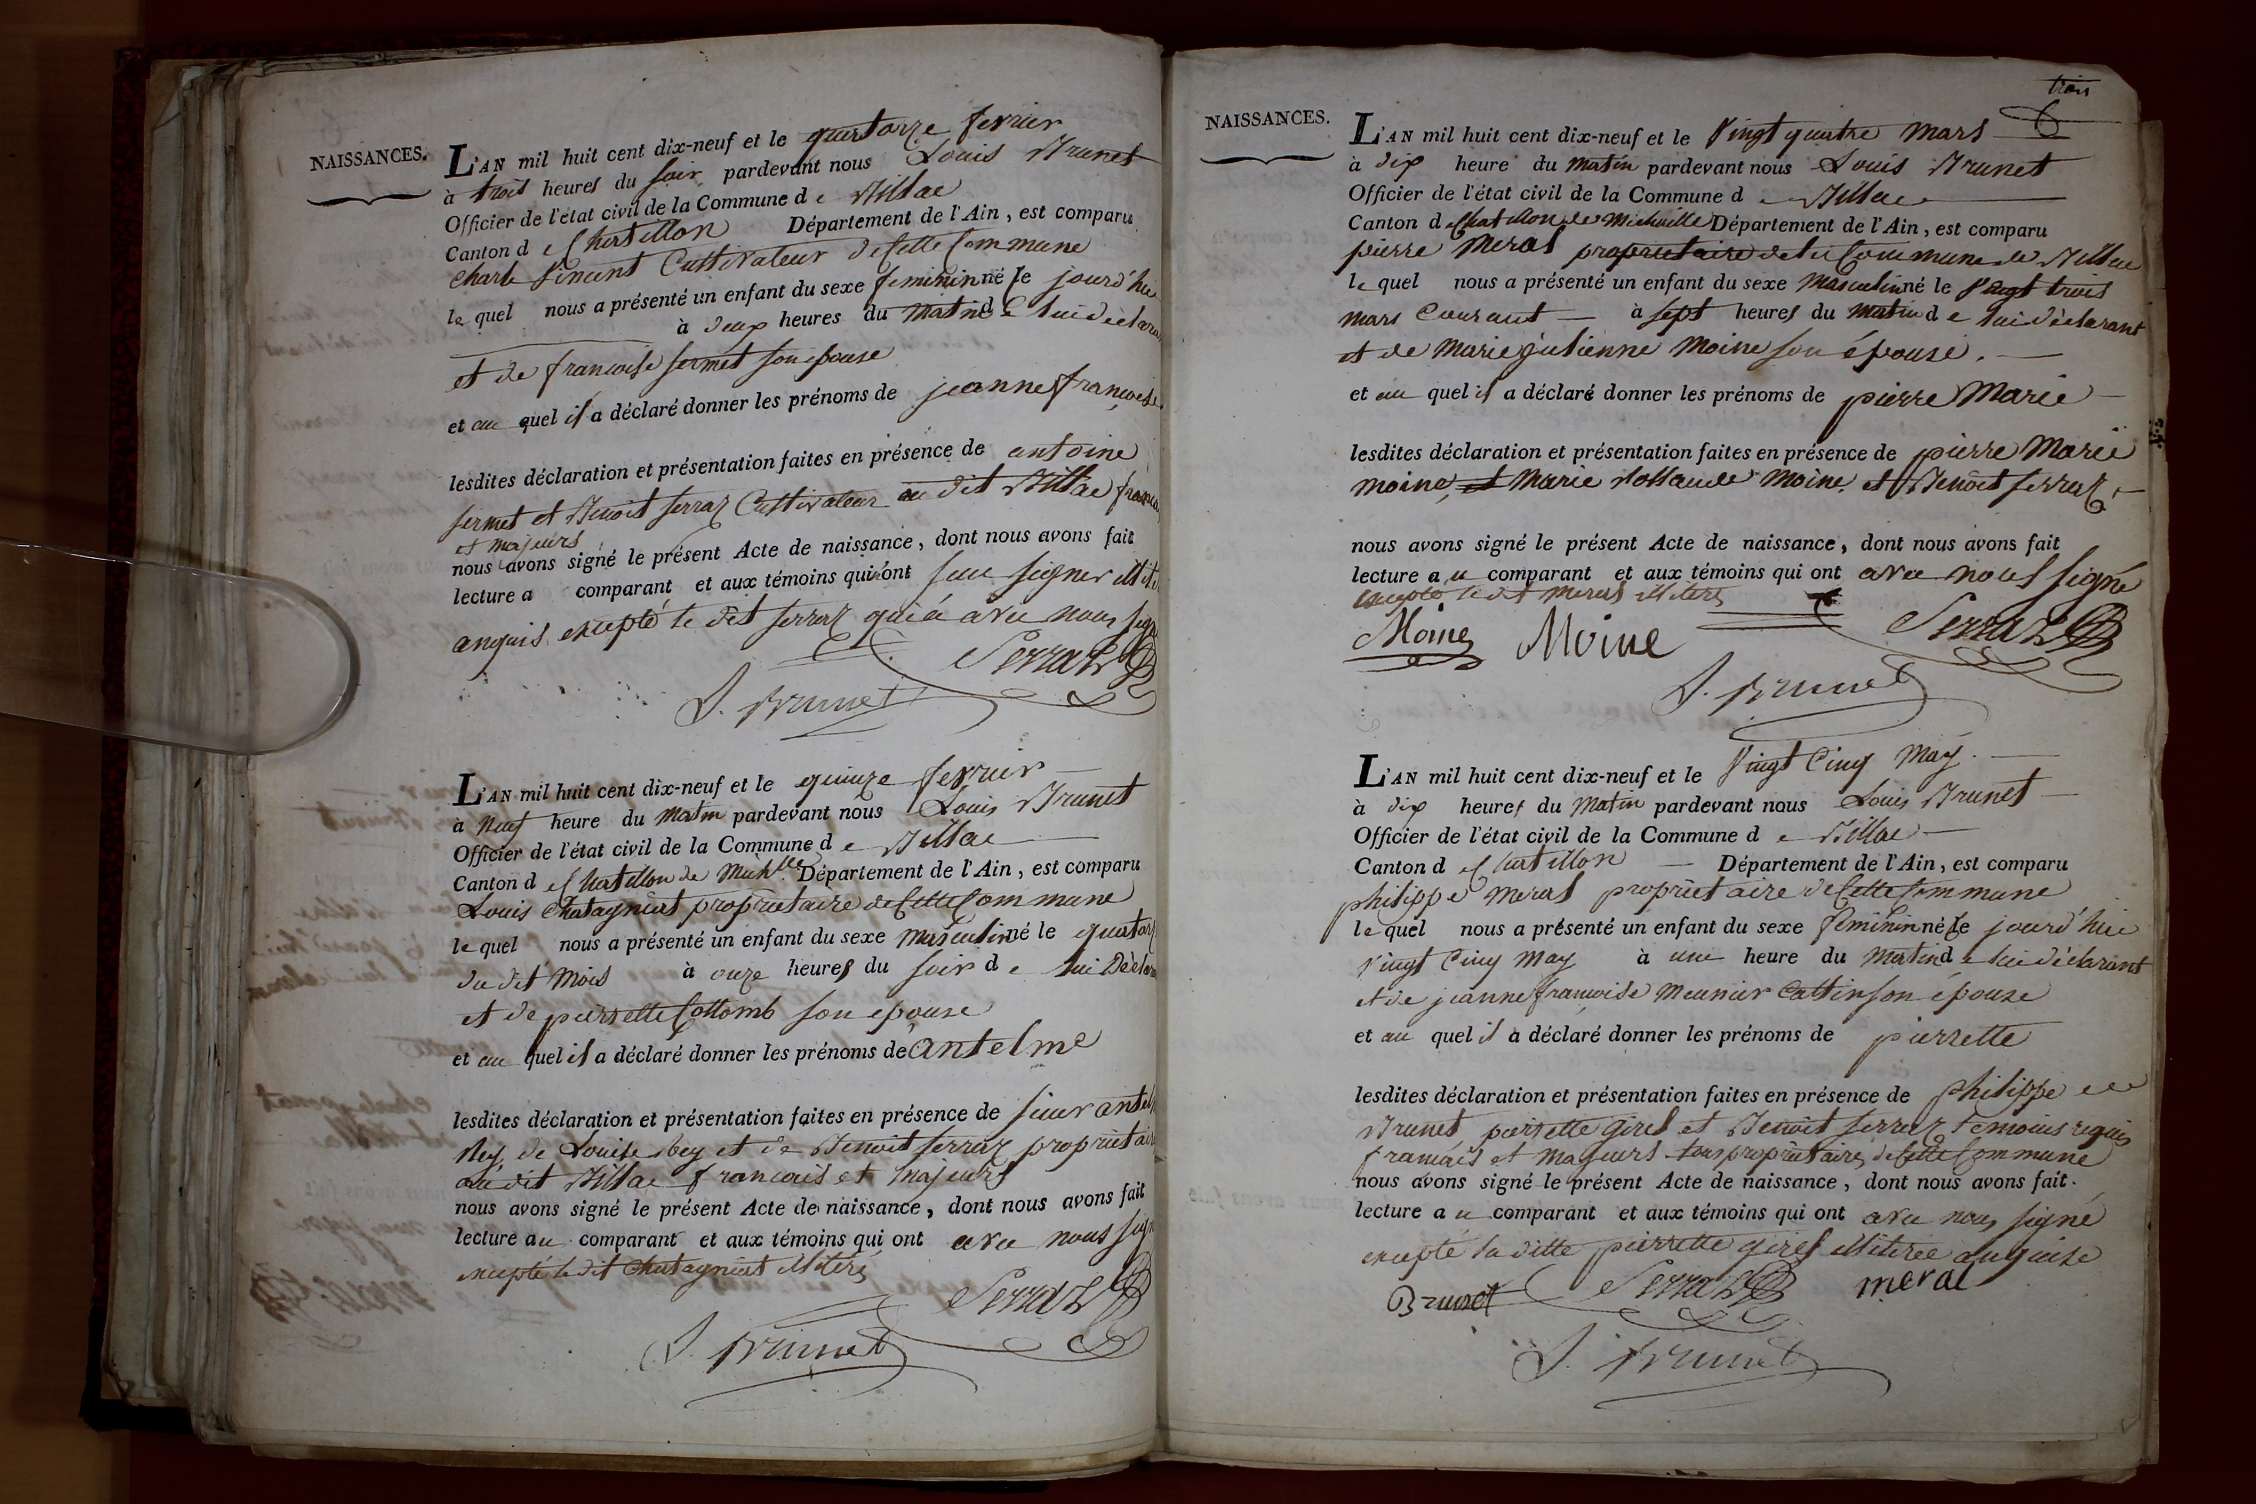 NAISSANCES.
L'AN mil huit cent dix-neuf et le quatorze fevrier
à trois heures du soir pardevant nous Louis Brunet
Officier de l'état civil de la Commune de Billac
Canton de Chatillon Département de l'Ain, est comparu
Charle Vincent Cultivateur de Cette Commune
le quel nous a présenté un enfant du sexe feminin né le jourd'hui
à deux heures du matin de lui déclarant
et de francoise sermet son epouse
et au quel il a déclaré donner les prénoms de jeanne françoise
lesdites déclaration et présentation faites en présence de antoine
sermet et Benoit serraz Cultivateur au dit Billac francais
et majeurs
nous avons signé le présent Acte de naissance, dont nous avons fait
lecture a comparant et aux témoins qui ont
excepté le dit serraz qui a avec nous signé
Serraz
L. Brunet
L'AN mil huit cent dix-neuf et le quinze fevrier
à Neuf heure du Matin pardevant nous Louis Brunet
Officier de l'état civil de la Commune de Billac
Canton de Chatillon de Mich.lle Département de l'Ain, est comparu
Louis Chatagniat propriétaire de Cette Commune
le quel nous a présenté un enfant du sexe masculin né le quatorz
du dit Mois à onze heures du soir de lui Déclara
et de pierrette Collomb son epouse
et au quel il a déclaré donner les prénoms de antelme
lesdites déclaration et présentation faites en présence de sieur
Bey, de Louise bey et de Benoit serraz propriétair
au dit Billac francais et majeurs
nous avons signé le présent Acte de naissance, dont nous avons fait
lecture au comparant et aux témoins qui ont avec nous sign
excepté le dit Chatagniat illitéré
Serraz
L. Brunet
trois
6
NAISSANCES.
L'AN mil huit cent dix-neuf et le Vingt quatre Mars
à dix heure du Matin pardevant nous Louis Brunet
Officier de l'état civil de la Commune de Billac
Canton de Chatillon de Michaille Département de l'Ain, est comparu
pierre Meral propriétaire de la Commune de Billac
le quel nous a présenté un enfant du sexe Masculin né le Vingt trois
Mars Courant à sept heures du Matin de lui déclarant
et de Marie julienne Moine son épouse.
et au quel il a déclaré donner les prénoms de pierre Marie
lesdites déclaration et présentation faites en présence de pierre Marie
Moine, et Marie Moine et Benoit serraz
nous avons signé le présent Acte de naissance, dont nous avons fait
lecture au comparant et aux témoins qui ont avec nous signé
excepté le dit Meral illitéré
Moine Moine Serraz
L. Brunet
L'AN mil huit cent dix-neuf et le Vingt Cinq May
à dix heures du Matin pardevant nous Louis Brunet
Officier de l'état civil de la Commune de Billac
Canton de Chatillon Département de l'Ain, est comparu
philippe Meral propriétaire de Cette Commune
le quel nous a présenté un enfant du sexe feminin né le jourd'hui
Vingt Cinq May à une heure du Matin de lui déclarant
et de jeanne francoise Meunier Cattin son épouse
et au quel il a déclaré donner les prénoms de pierrette
lesdites déclaration et présentation faites en présence de philippe
Brunet pierrette girel et Benoit serraz temoins requis
francais et majeurs tous propriétaires de Cette Commune
nous avons signé le présent Acte de naissance, dont nous avons fait.
lecture au comparant et aux témoins qui ont avec nous signé
excepté la ditte pierrette girel illiterée
Brunet Serraz meral
L. Brunet